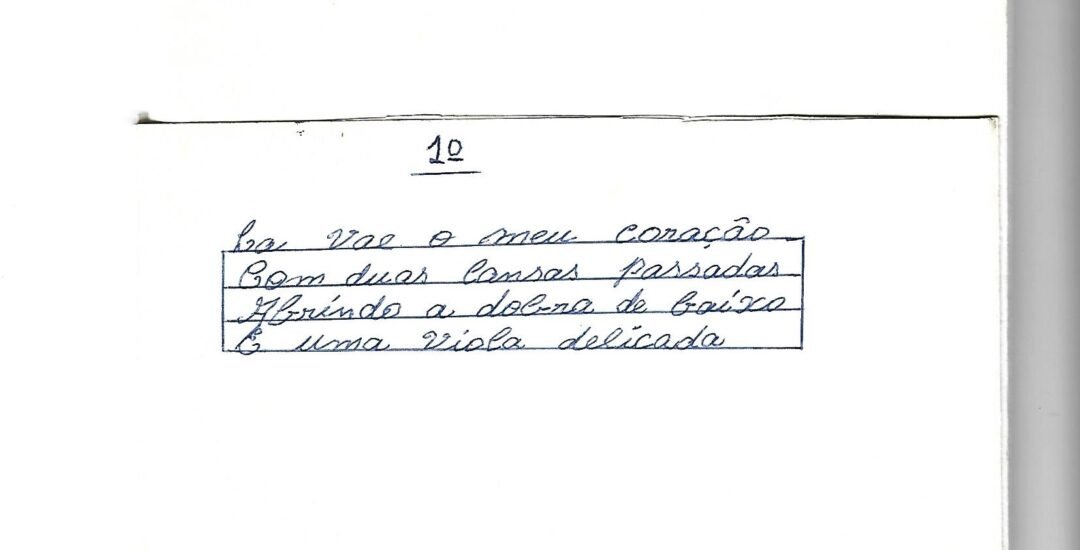 1º
La vae o meu coração
Com duas lansas passadas
Abrindo a dobra de baixo
É uma viola delicada